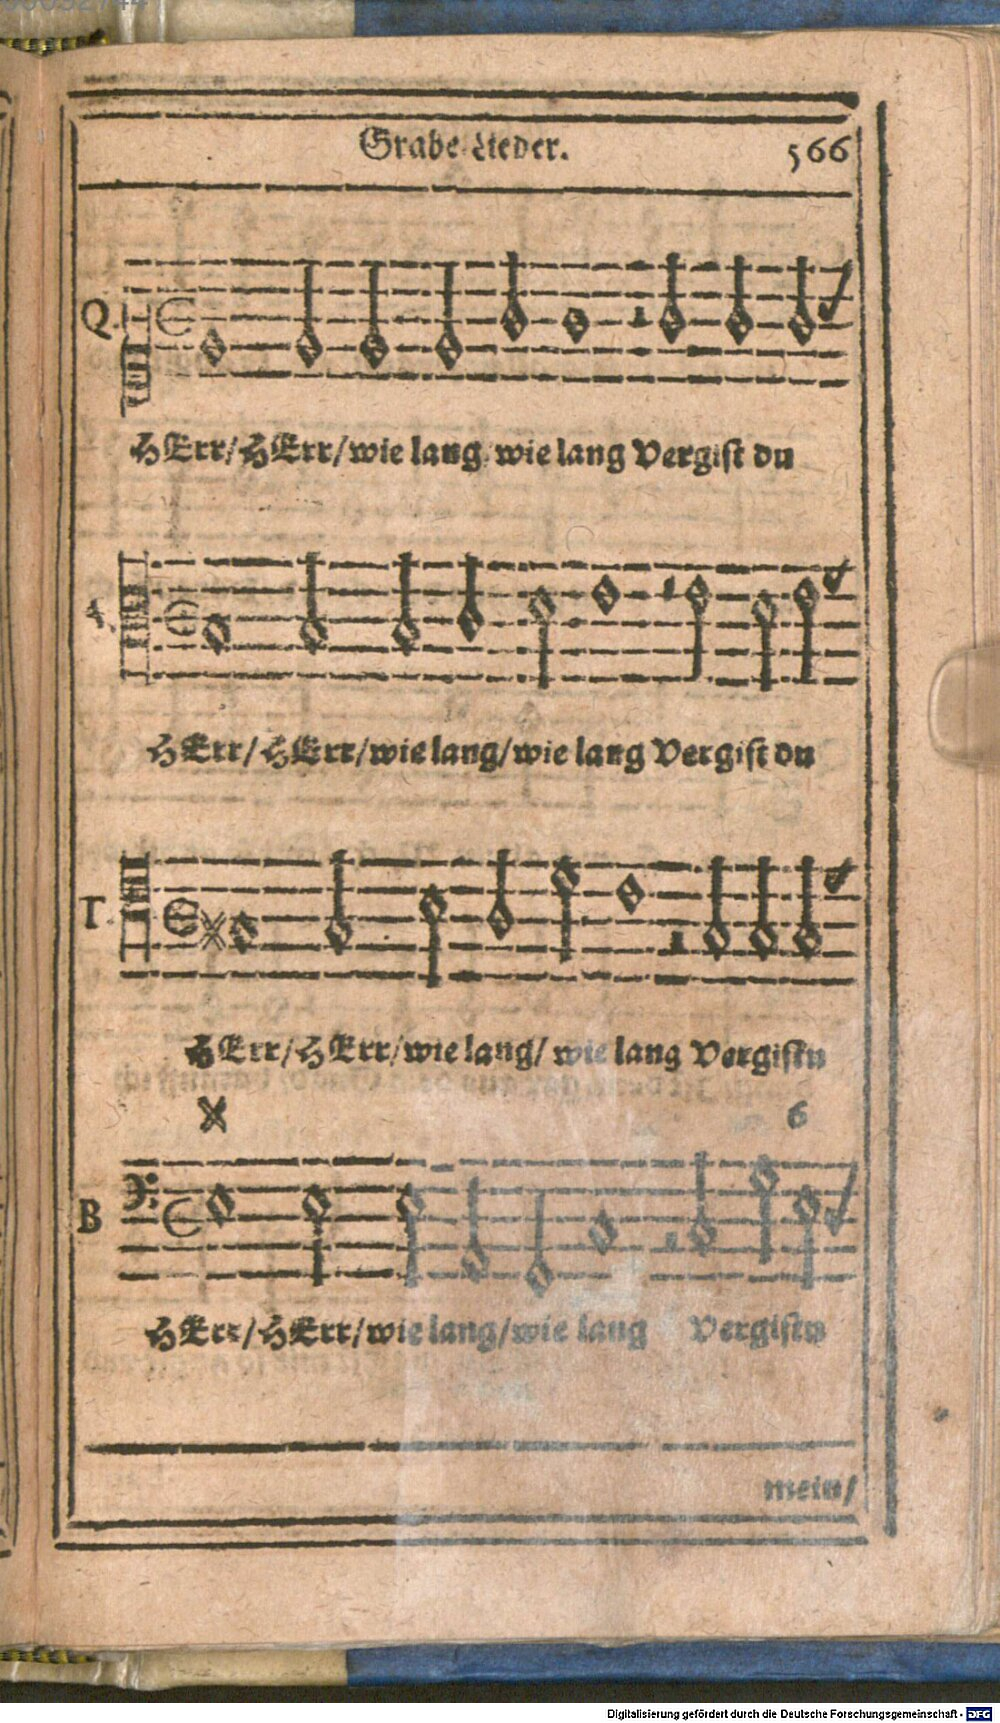 Grabe-Lieder. 566
Q.
HErr/HErr/wie lang/wie lang Vergist du
A.
HErr/HErr/wie lang/wie lang Vergist du
T.
HErr/HErr/wie lang/ wie lang Vergistu
6
B
HErr/HErr/wie lang/wie lang Vergistu
mein/
Digitalisierung gefördert durch die Deutsche Forschungsgemeinschaft - DFG